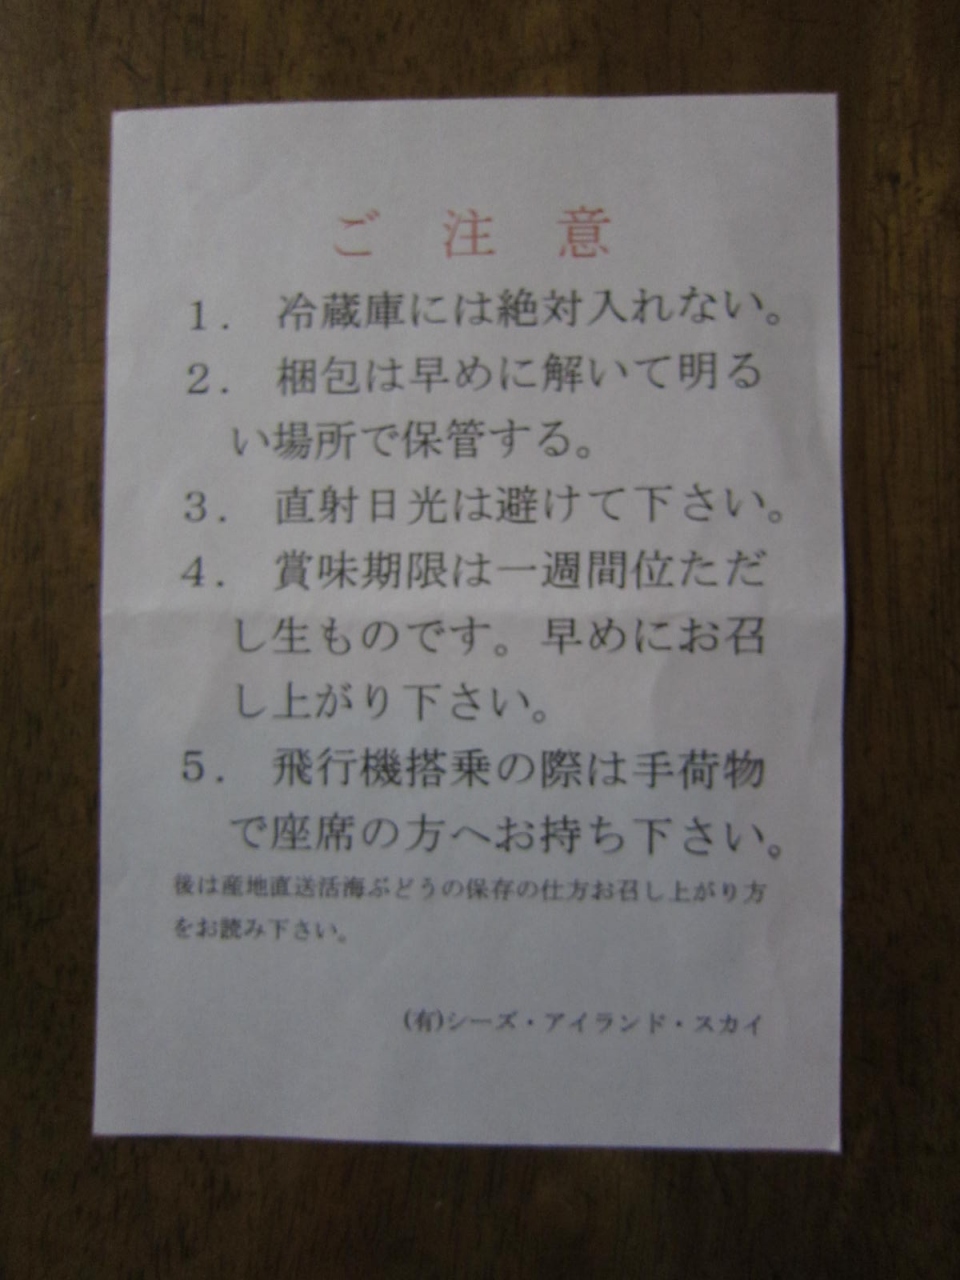 ご 注 意
１． 冷蔵庫には絶対入れない。
２． 梱包は早めに解いて明る
い場所で保管する。
３． 直射日光は避けて下さい。
４． 賞味期限は一週間位ただ
し生ものです。早めにお召
し上がり下さい。
５． 飛行機搭乗の際は手荷物
で座席の方へお持ち下さい。
後は産地直送活海ぶどうの保存の仕方お召し上がり方
をお読み下さい。
(有)シーズ・アイランド・スカイ